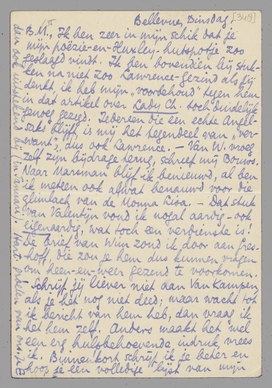 Bellevue, Dinsdag
B.M., Ik ben zeer in mijn schik dat je
mijn poëzie-en-Huxley-hutspotje zoo
geslaagd vindt. Ik ben bovendien bij stuk-
ken na niet zoo Lawrence-gezind als jij
denkt, ik heb mijn "voorbehoud" tegen hem
in dat artikel over Lady Ch. toch duidelijk
genoeg gezegd. Iedereen die een echte Angel-
saks blijft is mij het tegendeel van "ver-
want", dus ook Lawrence. — Van W. vroeg
zelf zijn bijdrage terug, schreef mij Bouws.
Naar Marsman blijf ik benieuwd, al ben
ik meteen ook alwat benauwd voor die
glimlach van de Monna Lisa. — Dat stuk
van Valentijn vond ik nogal aardig - ook
eigenaardig, wat toch een verdienste is!
De brief van Wim zond ik door aan Gres-
hoff, die zou je hem dus kunnen vragen
om heen-en-weer gezend te voorkomen.
Schrijf jij liever niet aan Van Kampen,
als je 't nog niet deed; maar wacht tot
ik bericht van hem heb, dan vraag ik
het hem zelf. Anders maakt het wel
een erg hulpbehoevende indruk, vrees
ik. Binnenkort schrijf ik je beter en
hoop je een volledige lijst van mijn